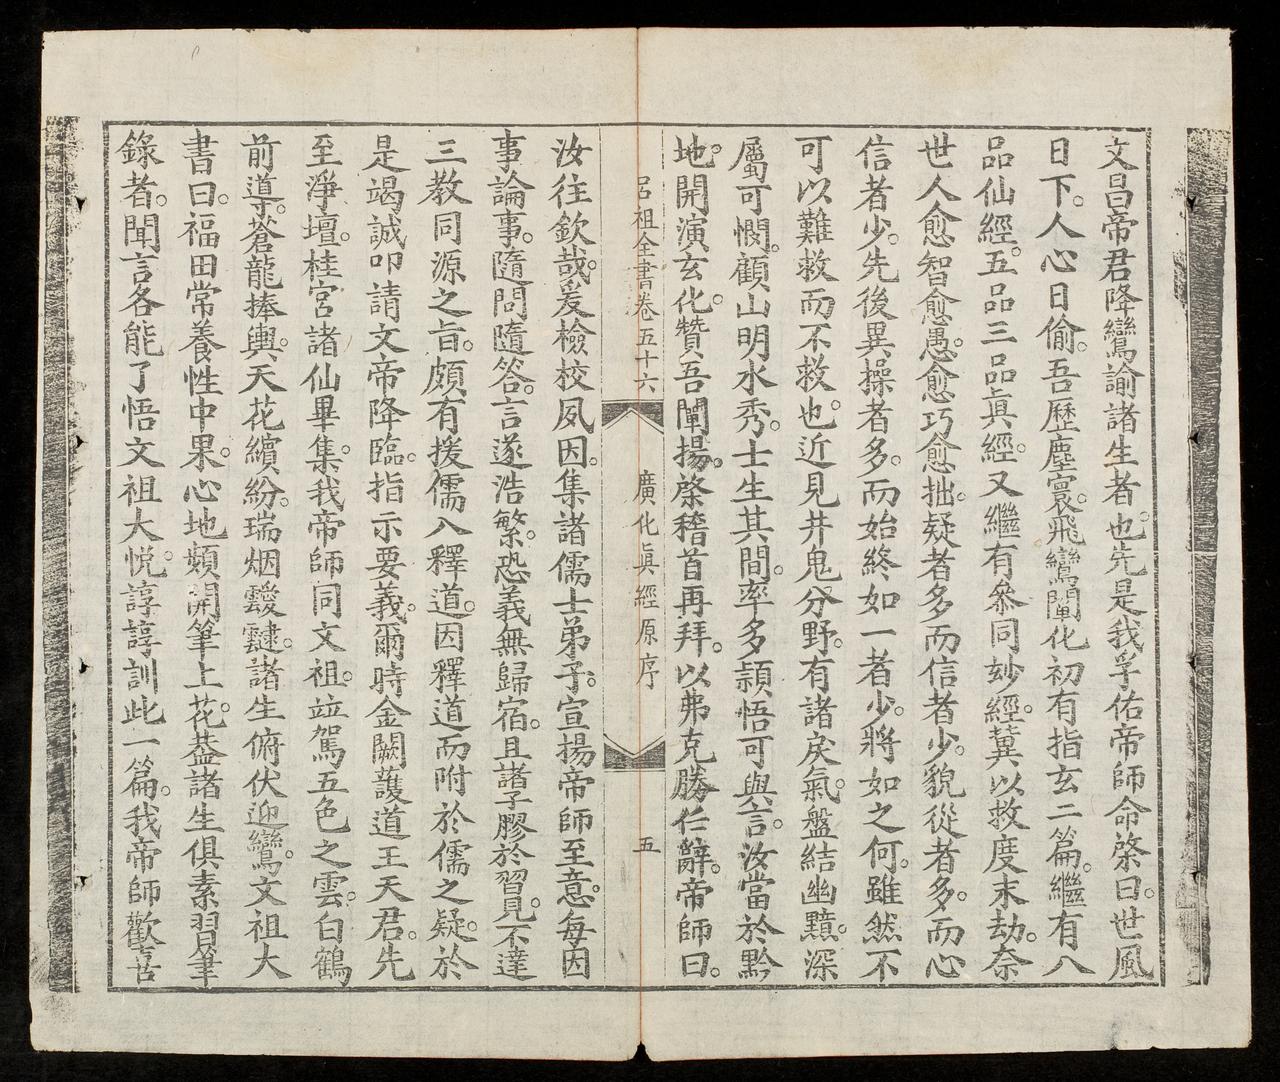 文昌帝君降鸞諭諸生者也。先是我孚佑帝師命棨曰。世風
日下。人心日偷。吾歷塵寰。飛鸞闡化。初有指玄二篇。繼有八
品仙經。五品三品眞經。又繼有參同妙經。冀以救度末劫。奈
世人愈智愈愚。愈巧愈拙。疑者多而信者少。貌從者多。而心
信者少。先後異操者多。而始終如一者少。將如之何。雖然不
可以難救而不救也。近見井鬼分野。有諸戾氣。盤結幽黯。深
屬可憫。顧山明水秀。士生其間。率多頴悟可與言。汝當於黔
地。開演玄化。贊吾闡揚。棨稽首再拜。以弗克勝任辭。帝師曰。
呂祖全書卷五十六　廣化眞經原序　五
汝往欽哉。爰檢校夙因。集諸儒士弟子。宣揚帝師至意。每因
事論事。隨問隨答。言遂浩繁。恐義無歸宿。且諸子膠於習見。不達
三教同源之旨。頗有援儒入釋道。因釋道而附於儒之疑。於
是竭誠叩請文帝降臨。指示要義。爾時金闕護道王天君。先
至淨壇。桂宮諸仙畢集。我帝師同文祖。竝駕五色之雲。白鶴
前導。蒼龍捧輿。天花繽紛。瑞烟靉靆。諸生俯伏迎鸞。文祖大
書曰。福田常養性中果。心地頻開筆上花。葢諸生俱素習筆
錄者。聞言各能了悟。文祖大悅。諄諄訓此一篇。我帝師歡喜